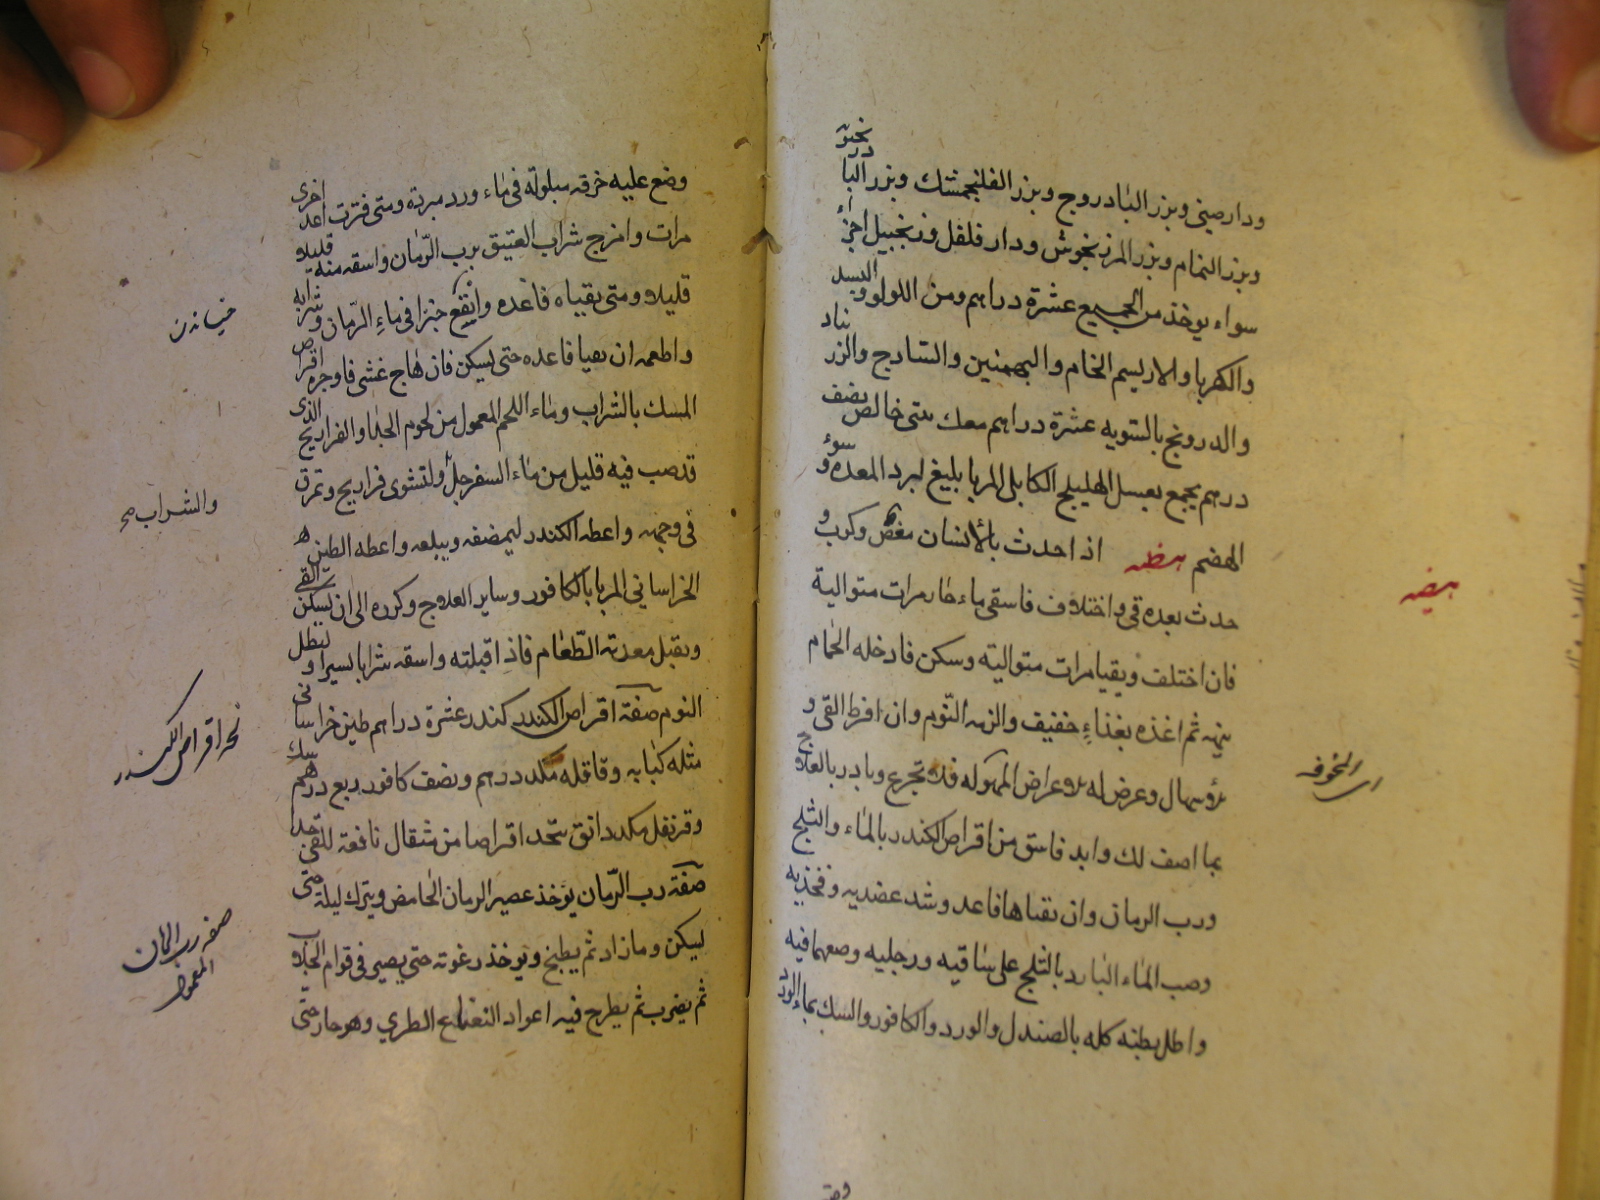 ودارصيني وبزر البادروج وبزر الفلنجمشك وبزر البا
درنجبويه
وبزر النمام وبزر المرزنجوش ودار فلفل وزنجبيل اجزاء
سواء يوخذ من الجميع عشرة دراهم ومن اللولو والبسد
والكهربا والابريسم الخام والبهمنين والسادج والزرنباد
والدرونج بالسويه عشرة دراهم مسك خالص نصف
درهم يجمع بعسل الهليلج الكابلي المربا بليغ لبرد المعده وسوء
الهضم هيضه اذا حدث بالانسان مغص وكرب و
حدث بعده قي واختلاف فاسقي ماء حار مرات متوالية
فان اختلف ويقيا مرات متواليه وسكن فادخله الحمام
ثم اغذه بغذاء خفيف والزمه النوم وان افرط القي و
وعرض له الاعراض المهوله فلا تجزع وبادر بالعلاج
بما اصف لك وابد فاسق من اقراص الكندر بالماء والثلج
ورب الرمان وان تقياها فاعد وشد عضديه وفخذيه
وصب الماء البارد بالثلج على ساقيه ورجليه وضعهما فيه
واطل بطنه كله بالصندل والورد والكافور والسك بماء الورد
هيضه
اى المخوفه
وضع عليه خرقه مبلوله في ماء ورد مبردة ومتى فترت اعد اخرى
مرات وامزج شراب العتيق برب الرمان واسقه منه قليلا
قليلا ومتى يقياه فاعده وانقع خبزا في ماء الرمان وشرابه
واطعمه ان تقيا فاعده حتى يسكن فان هاج غشى فاوجره اقراص
المسك بالشراب وماء اللحم المعمول من لحوم الجدا والفراريج الذى
قد صب فيه قليل من ماء السفرجل ولتشوى فراريج وتمرق
في وجهه واعطه الكندر ليمضغه ويبلعه واعطه الطين
الخراساني المربا بالكافور وساير العلاج وكرره الى ان يسكن القي
وتقبل معدته الطعام فاذا قبلته واسقه شرابا يسيرا وليطل
النوم صفة اقراص الكندر كندر عشرة دراهم طين خراساني
مثله كبابه وقاقله مكد درهم ونصف كافور ربع درهم سك
وقرنفل مكد دانق يتخد اقراصا من مثقال نافعة للقي جدا
صفة رب الرمان يوخذ عصير الرمان الحامض ويترك ليلة حتى
يسكن ثم يطبخ ويوخذ رغوته حتى يصير في قوام الجلاب
ثم يضرب ثم يطرح فيه اعواد النعناع الطري وهو حار حتى
والشراب صح
اقراص الكندر
صفه رب الرمان